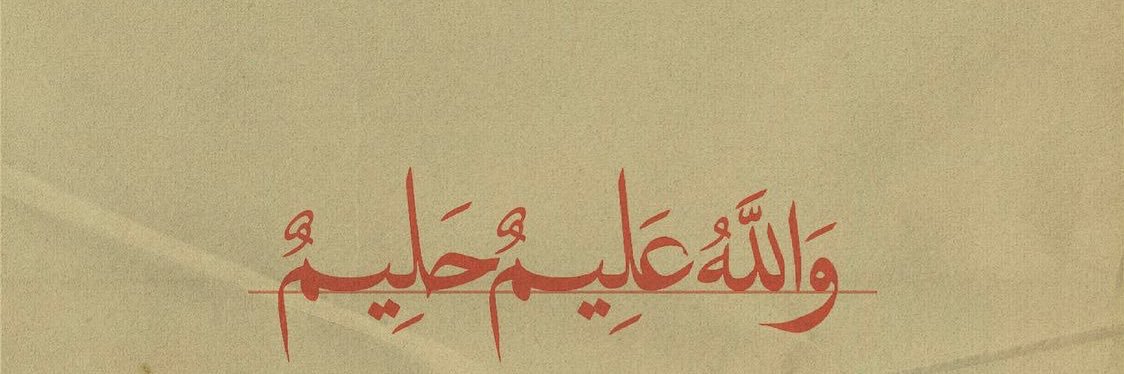 وَاللَّهُ عَلِيمٌ حَلِيمٌ